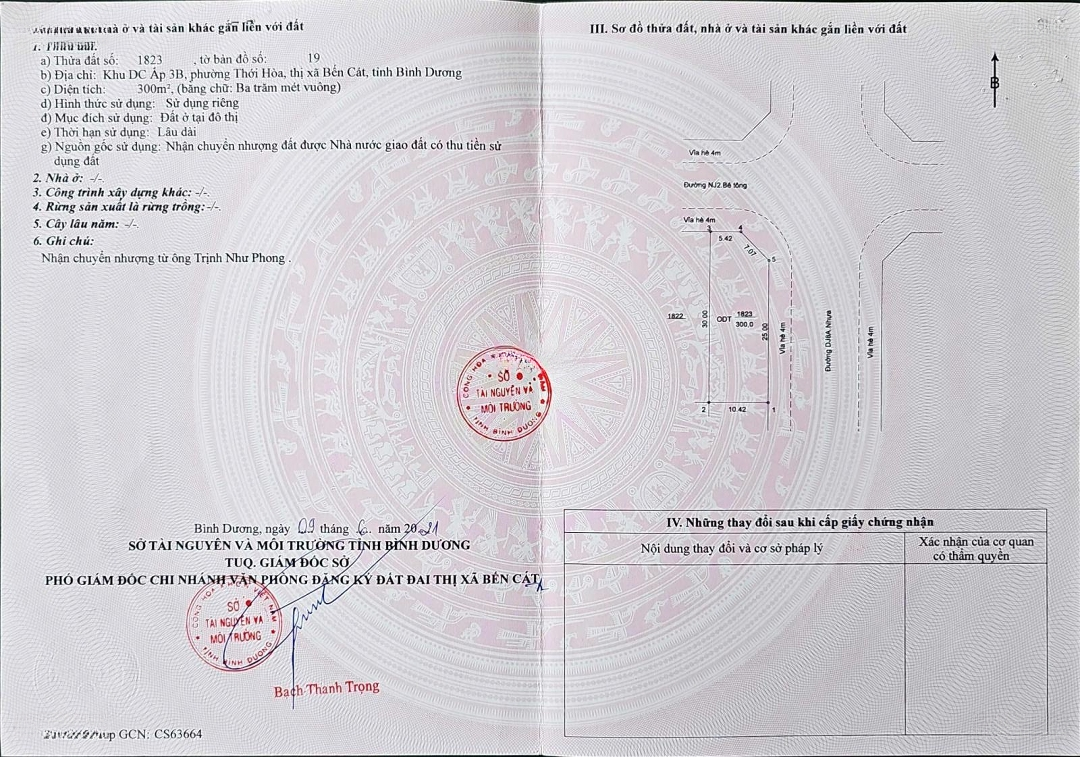 ở và tài sản khác gắn liền với đất
a) Thửa đất số: 1823 , tờ bản đồ số: 19
b) Địa chỉ: Khu DC Ấp 3B, phường Thới Hòa, thị xã Bến Cát, tỉnh Bình Dương
c) Diện tích: 300m², (bằng chữ: Ba trăm mét vuông)
d) Hình thức sử dụng: Sử dụng riêng
đ) Mục đích sử dụng: Đất ở tại đô thị
e) Thời hạn sử dụng: Lâu dài
g) Nguồn gốc sử dụng: Nhận chuyển nhượng đất được Nhà nước giao đất có thu tiền sử
dụng đất
2. Nhà ở: -/-.
3. Công trình xây dựng khác: -/-.
4. Rừng sản xuất là rừng trồng:-/-.
5. Cây lâu năm: -/-.
6. Ghi chú:
Nhận chuyển nhượng từ ông Trịnh Như Phong .
SỞ
TÀI NGUYÊN VÀ
MÔI TRƯỜNG
TỈNH BÌNH DƯƠNG
Bình Dương, ngày 09 tháng 6 năm 2021
SỞ TÀI NGUYÊN VÀ MÔI TRƯỜNG TỈNH BÌNH DƯƠNG
TUQ. GIÁM ĐỐC SỞ
PHÓ GIÁM ĐỐC CHI NHÁNH VĂN PHÒNG ĐĂNG KÝ ĐẤT ĐAI THỊ XÃ BẾN CÁT
SỞ
TÀI NGUYÊN VÀ
MÔI TRƯỜNG
TỈNH BÌNH DƯƠNG
Bạch Thanh Trọng
GCN: CS63664
III. Sơ đồ thửa đất, nhà ở và tài sản khác gắn liền với đất
B
Vỉa hè 4m
Đường NJ2.Bê tông
Vỉa hè 4m
3
4
5.42
7.07
5
1822
30.00
ODT
1823
300.0
25.00
Vỉa hè 4m
Đường DJ8A Nhựa
Vỉa hè 4m
2
10.42
1
IV. Những thay đổi sau khi cấp giấy chứng nhận
Nội dung thay đổi và cơ sở pháp lý
Xác nhận của cơ quan
có thẩm quyền